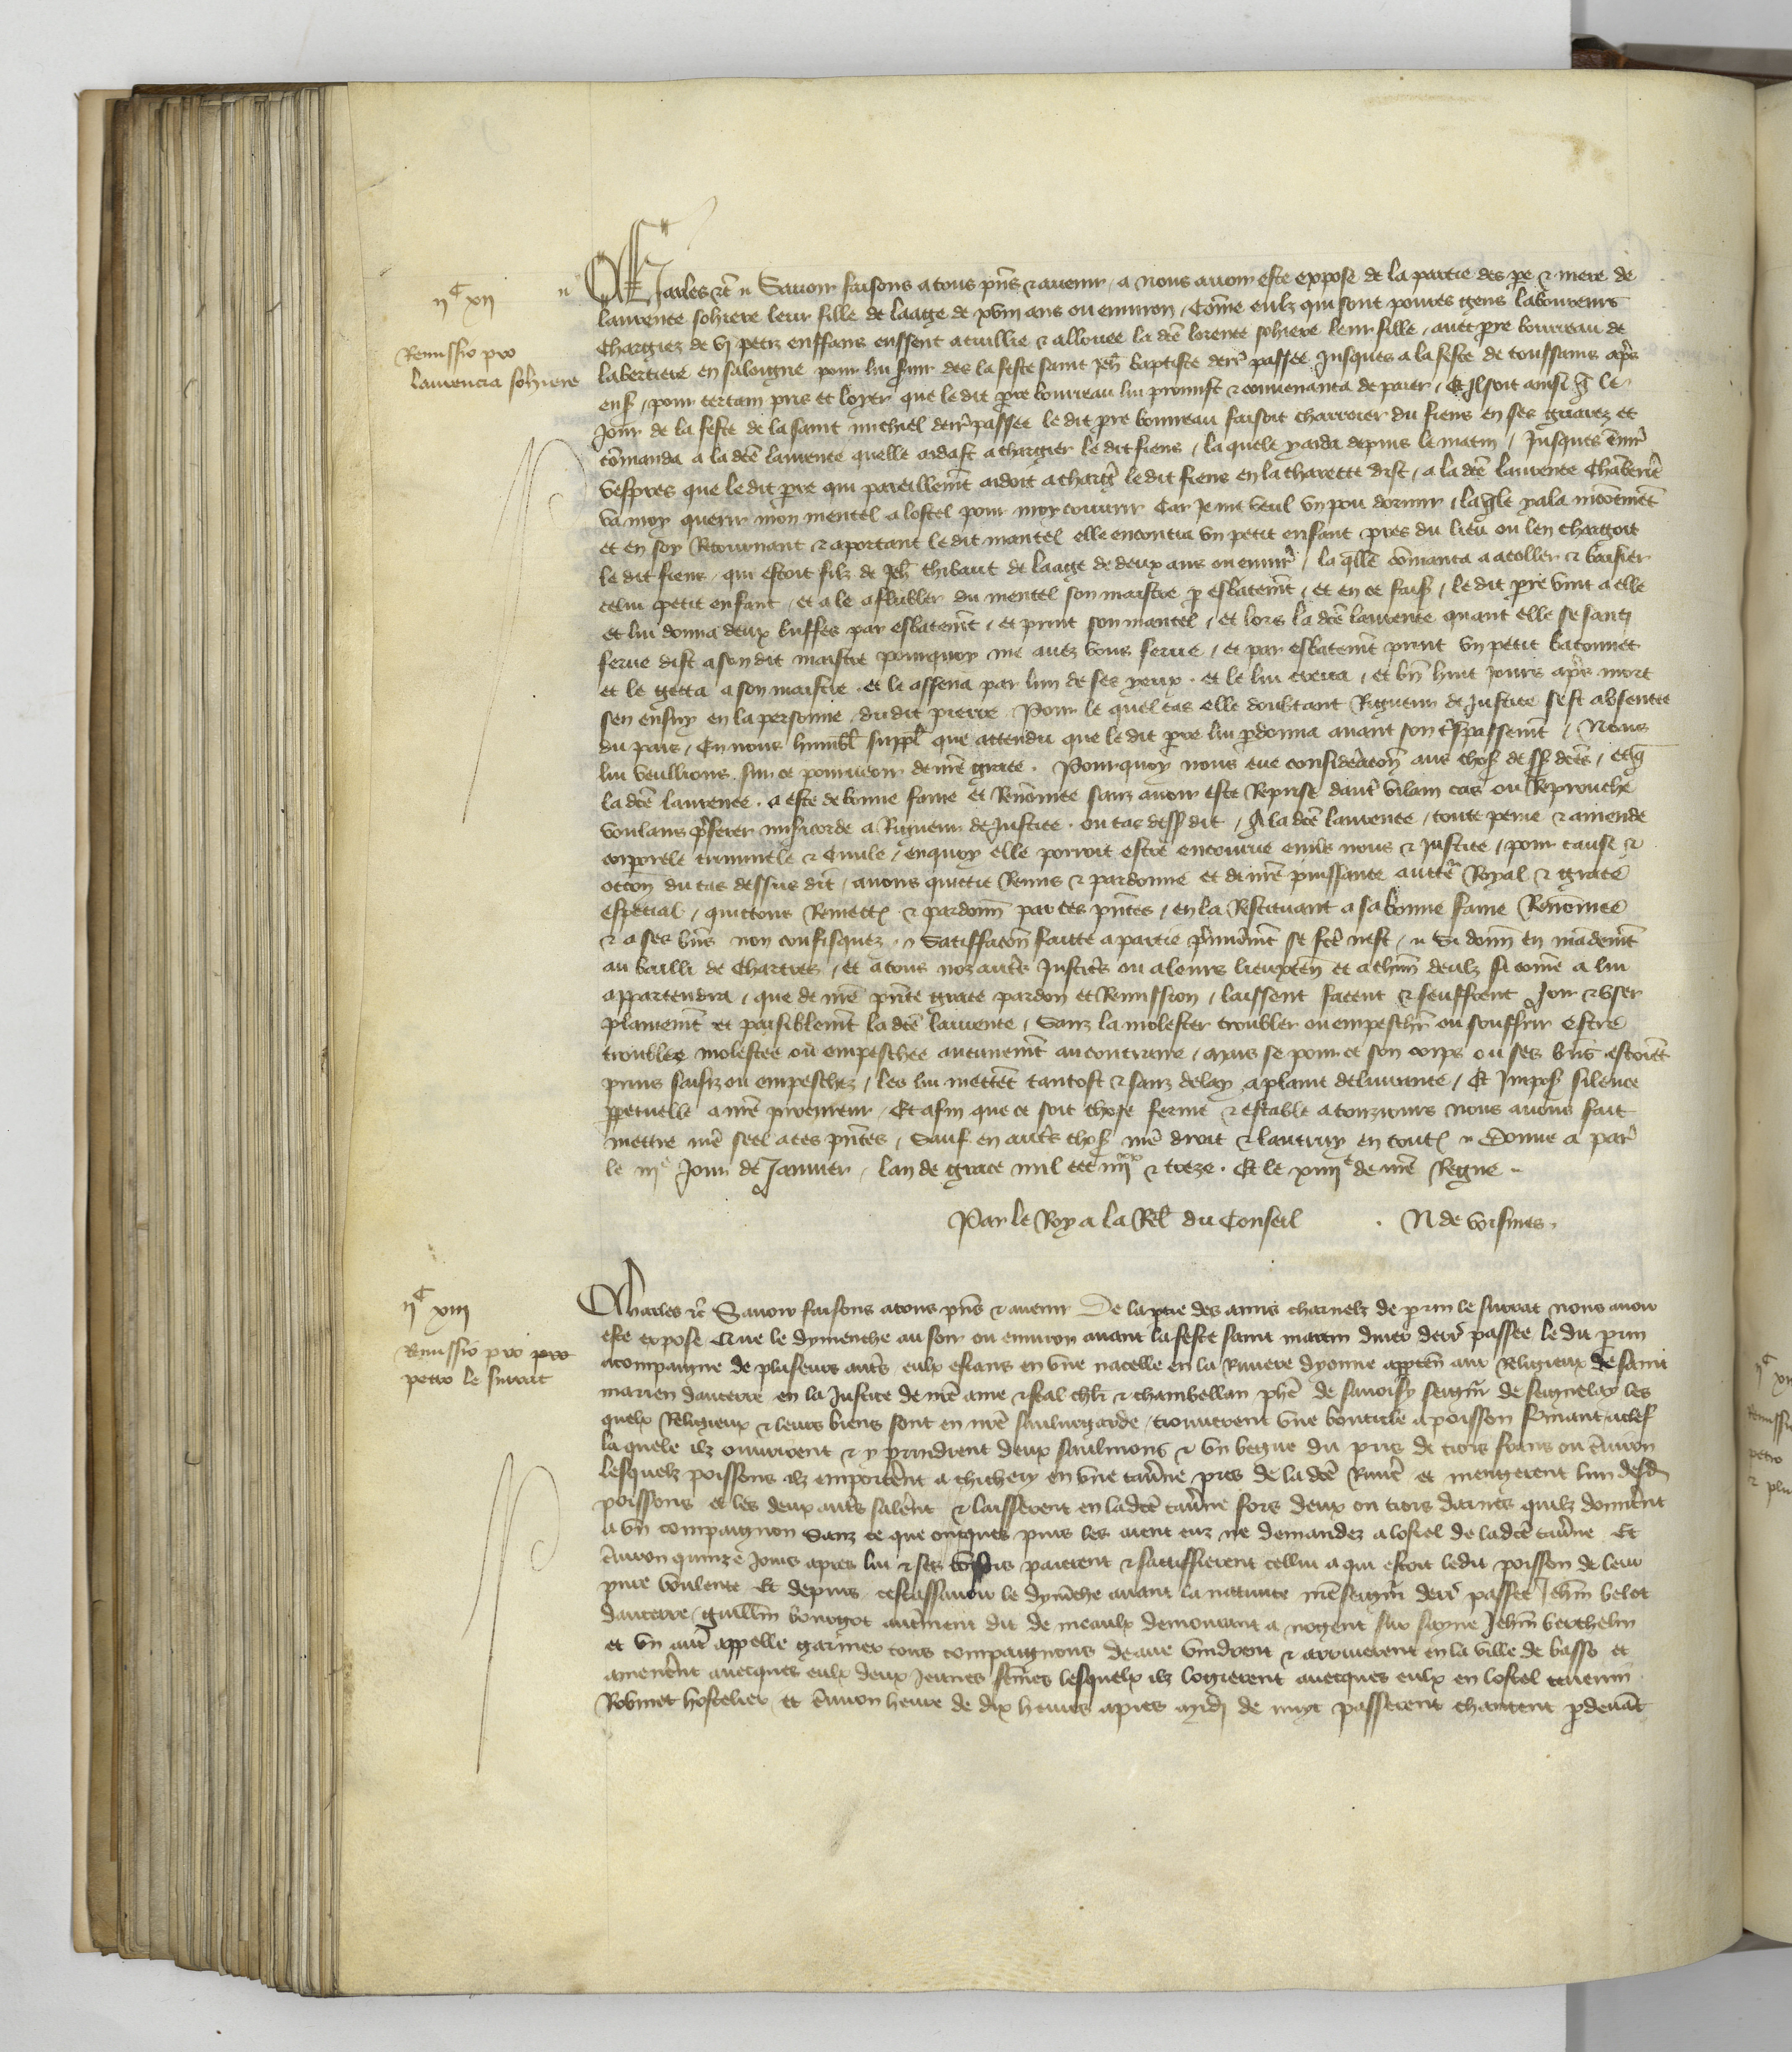 iiᶜ xii
Remissio pro
laurencia sohiere
Charles etc. Savoir faisons a tous pñs et avenir, a nous avoir este expose de la partie des pe et mere de
laurence sohiere leur fille de laage de xviii ans ou environ, Cõme eulz qui sont povres gens laboureurs
Chargiez de vi petiz enffans eussent acuillie et allouee la dcẽ lorence sohiere leur fille, avec pre bourreau de
labertiere en saloigne pour lui svir des la feste saint Jeh baptiste derr passee Jusques a la feste de toussains apr̃s
ens, pour certain pris et loyer que le dit pre bourreau lui promist et convenanta de paier, Et Il soit ainsi q̃ le
Jour de la feste de la saint michiel derr passee le dit pre bourreau faisoit charroier du fiens en ses guerez et
cõmanda a la dcẽ laurence quelle aidast a chargier le dit fiens, la quele y aida depuis le matin, Jusques envir̃
vespres que le dit pre qui pareillemẽt aidoit a charg̃ le dit fiens en la charette dist, a la dcẽ laurence Chãberie
va moy querir mon mentel a lostel pour moy couvrir Car Je me veul un pou dormir, laq̃le y ala incõtinẽt
et en soy Retournant et aportant le dit mantel elle encontra un petit enfant pres du lieu ou len chargoit
le dit fiens, qui estoit filz de Jeh thibaut de laage de deux ans ou envir̃, la qlle cõmança a acoller et baisier
celui petit enfant, et a le affubler du mentel son maistre p esbatemẽt, et en ce fais, le dit pre vint a elle
et lui donna deux buffes par esbatemẽt, et print son mantel, et lors la dcẽ laurence quant elle se santi
ferue dist a son dit maistre pourquoy me avez vous ferue, et par esbatemẽt print un petit batonnet
et le getta a son maistre, et le assena par lun de ses yeux, et le lui creva, et bñ huit Jours apr̃s mort
sen ensuy en la personne du dit pierre. Pour le quel cas elle doubtant Rigueur de Justice sest absentee
du pais, En nous humbl suppl que attendu que le dit pre lui pdonna avant son trespassemẽt, Nous
lui veullions sur ce pourveoir de nr̃e grace. Pourquoy nous eue consideracõn aus chos dess dcẽs, et q̃
la dcẽ laurence a este de bonne fame et Renõmee sanz avoir este Reprise dautr̃ vilain cas ou Reprouche
voulans pr̃ferer miscorde a Rigueur de Justice, ou cas dess dit, A la dcẽ laurence, toute peine et amende
corporele criminele et Civile, en quoy elle porroit estre encourue envs nous et Justice, pour cause et
occõn du cas dessus dit, avons quittie Remis et pardonne et de nr̃e puissance auctte Royal et grace
especial, quittons Remett et pardonñ par ces pñtes, en la Restituant a sa bonne fame Renõmee
et a ses bñs non confisquez, Satisfacõn faitte a partie pr̃mieremẽt se fcẽ nest, Si donñ en mãdemẽt
au bailli de Chartres, et a tous noz autr̃s Justicr̃s ou a leurs lieuxteñ et a chũn deulz si cõme a lui
appartendra, que de nr̃e pñte grace pardon et Remission, laissent facent et seuffrent Joir et user
plainemẽt et paisiblemẽt la dcẽ laurence, Sanz la molester troubler ou empeschir ou souffrir estre
troublee molestee ou empeschee aucunemẽt au contraire, mais se pour ce son corps ou ses bñs estoiẽt
prins saisiz ou empeschez, les lui mettẽt tantost et sanz delay a plaine delivrance, Et Impos silence
ppetuelle a nr̃e procureur, Et afin que ce soit chose ferme et estable a touzjours nous avons fait
mettre nr̃e seel a ces pñtes, Sauf en autr̃s chos nr̃e droit et lautruy en tout. Donne a par̃
le iiiᵉ Jour de Janvier, lan de grace mil ccc iiiiˣˣ et treze. Et le xiiiiᵉ de nr̃e Regne.
Par le Roy a la Rel du Conseil . N de voisines.
iiᶜ xiii
Remissio pro pro
petro le surrat
Charles etc Savoir faisons a tous pñs et avenir De la ptie des amis charnelz de prin le surrat nous avoir
este expose Que le dymenche au soir ou environ avant la feste saint martin diver derr̃ passee le dit prin
acompaigne de pluseurs autr̃s eulx estans en une nacelle en la Riviere dyonne apptẽn aux Religieux de saint
marien daucerre en la Justice de nr̃e ame et feal chlr et chambellan phe de savoisy seigñr de seignelay les
quelx Religieux et leurs biens sont en nr̃e sauvegarde, trouverent une bouticle a poisson fermant a clef
la quele ilz ouvrirent et y prindrent deux saulmons et un becque du pris de trois frans ou environ
lesquelz poissons ilz emporterent a chichery en une taverne pres de la dcẽ Rivr̃ et mengerent lun desd
poissons et les deux autr̃s salerent et laisserent en ladcẽ taverne fors deux ou trois darnes quilz donnerent
a un compaignon Sanz ce que onques puis les aient euz ne demandez a lostel de ladcẽ taverne Et
environ quinze jours apres lui et ses paierent et satisfierent cellui a qui estoit ledit poisson de leur
pure voulente Et depuis cestassavoir le dymẽche avant la nativite nr̃e seigñr derr̃ passee Jehñ belot
daucerre, guillm bourgot autrement dit de meaulx demourant a nogent sur sayne Jehñ berthelin
et un autr̃ appelle garnier tous compaignons vindrent et arriverent en la ville de basso et
amenerent avecques eulx deux Jeunes fẽmes lesquelx ilz logierent avecques eulx en lostel
Robinet hostelier et environ heure de dix heures apres midi de nuyt passerent chantent pdevãt